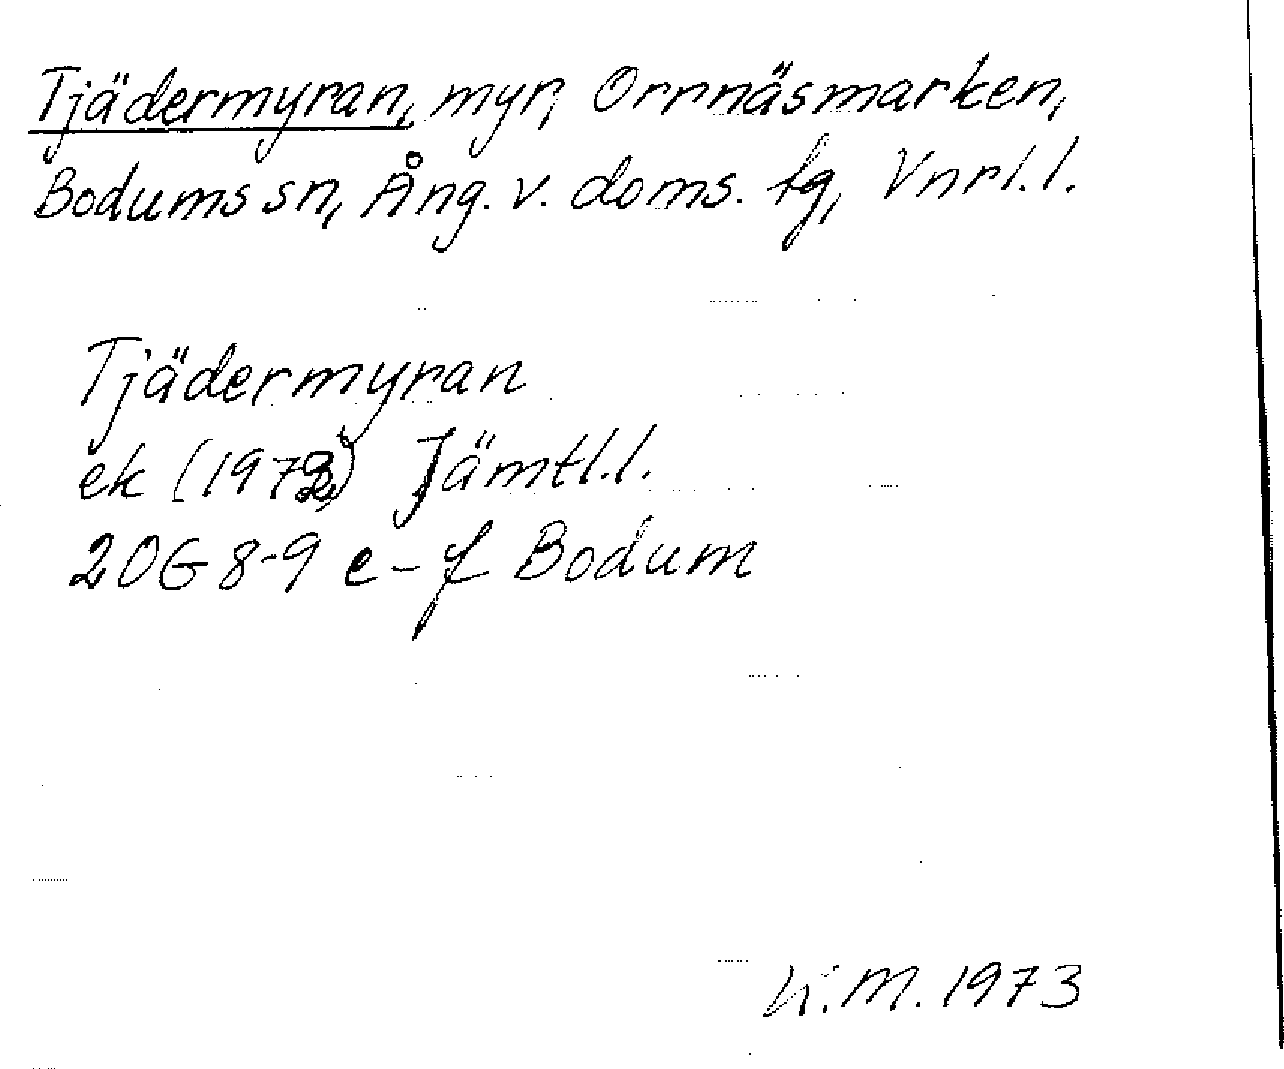 Tjädermyran, myr, Ornnäsmarken,
Bodums sn, Ång. v. doms. fg, Vnrl.l.
Tjädermyran
ek (1972) Jämtl.l.
20G 8-9 e-f Bodum
M. 1973